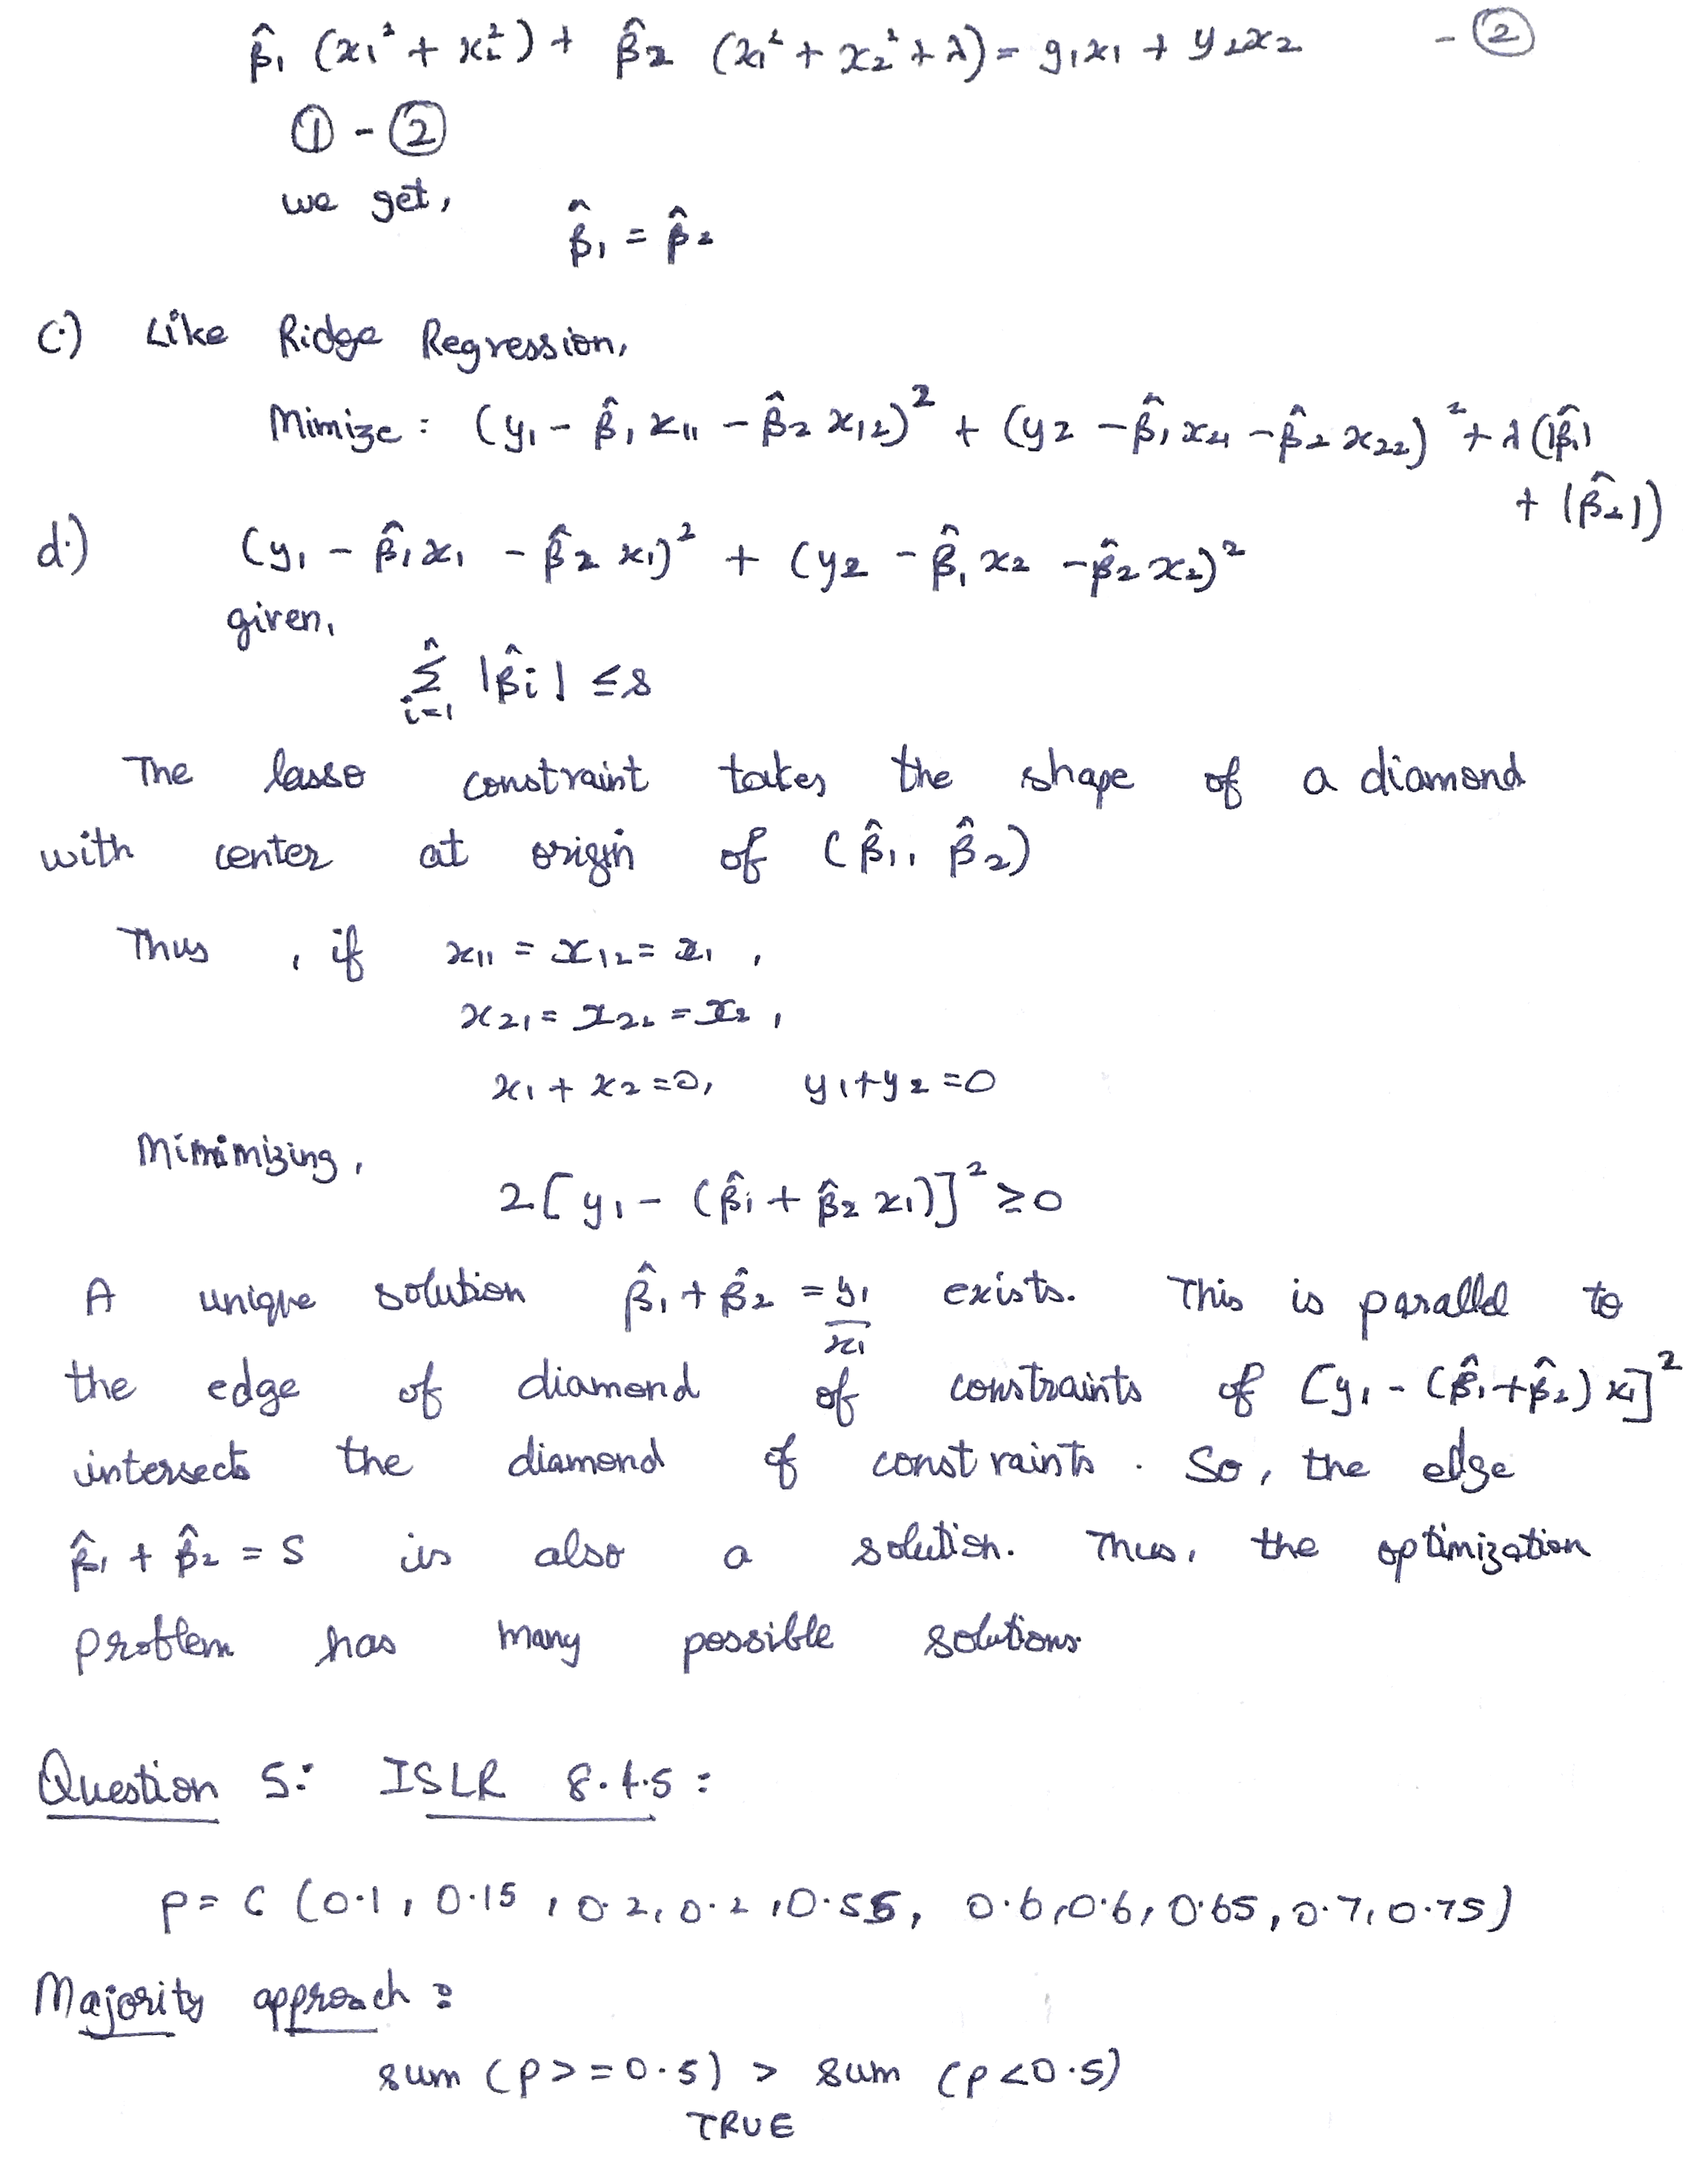 β̂₁ (x₁² + x₂²) + β̂₂ (x₁² + x₂² + λ) = y₁x₁ + y₂x₂ - ②
① - ②
we get,
β̂₁ = β̂₂
c.) Like Ridge Regression,
Mimize : (y₁ - β̂₁ x₁₁ - β̂₂ x₁₂)² + (y₂ - β̂₁ x₂₁ - β̂₂ x₂₂)² + λ (|β̂₁|
+ |β̂₂|)
d.) (y₁ - β̂₁x₁ - β̂₂ x₁)² + (y₂ - β̂₁ x₂ - β̂₂ x₂)²
given,
n
Σ |β̂i| ≤ s
i=1
The lasso constraint takes the shape of a diamond
with center at origin of (β̂₁, β̂₂)
Thus , if x₁₁ = x₁₂ = x₁ ,
x₂₁ = x₂₂ = x₂ ,
x₁ + x₂ = 0, y₁ + y₂ = 0
Mimimizing,
2[y₁ - (β̂₁ + β̂₂ x₁)]² ≥ 0
A unique solution β̂₁ + β̂₂ = y₁/x₁ exists. This is parallel to
the edge of diamond of constraints of [y₁ - (β̂₁ + β̂₂) x₁]²
intersects the diamond of constraints . So, the edge
β̂₁ + β̂₂ = S is also a solution. Thus, the optimization
problem has many possible solutions.
Question 5: ISLR 8.4.5 :
p = c (0.1, 0.15, 0.2, 0.2, 0.55, 0.6, 0.6, 0.65, 0.7, 0.75)
Majority approach :
sum (p >= 0.5) > sum (p < 0.5)
TRUE